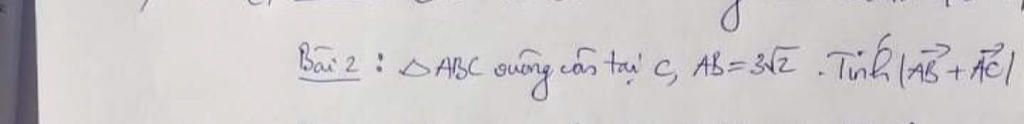 Bài 2 : △ABC vuông cân tại C, AB = 3√2 . Tính |\overrightarrow{AB} + \overrightarrow{AC}|